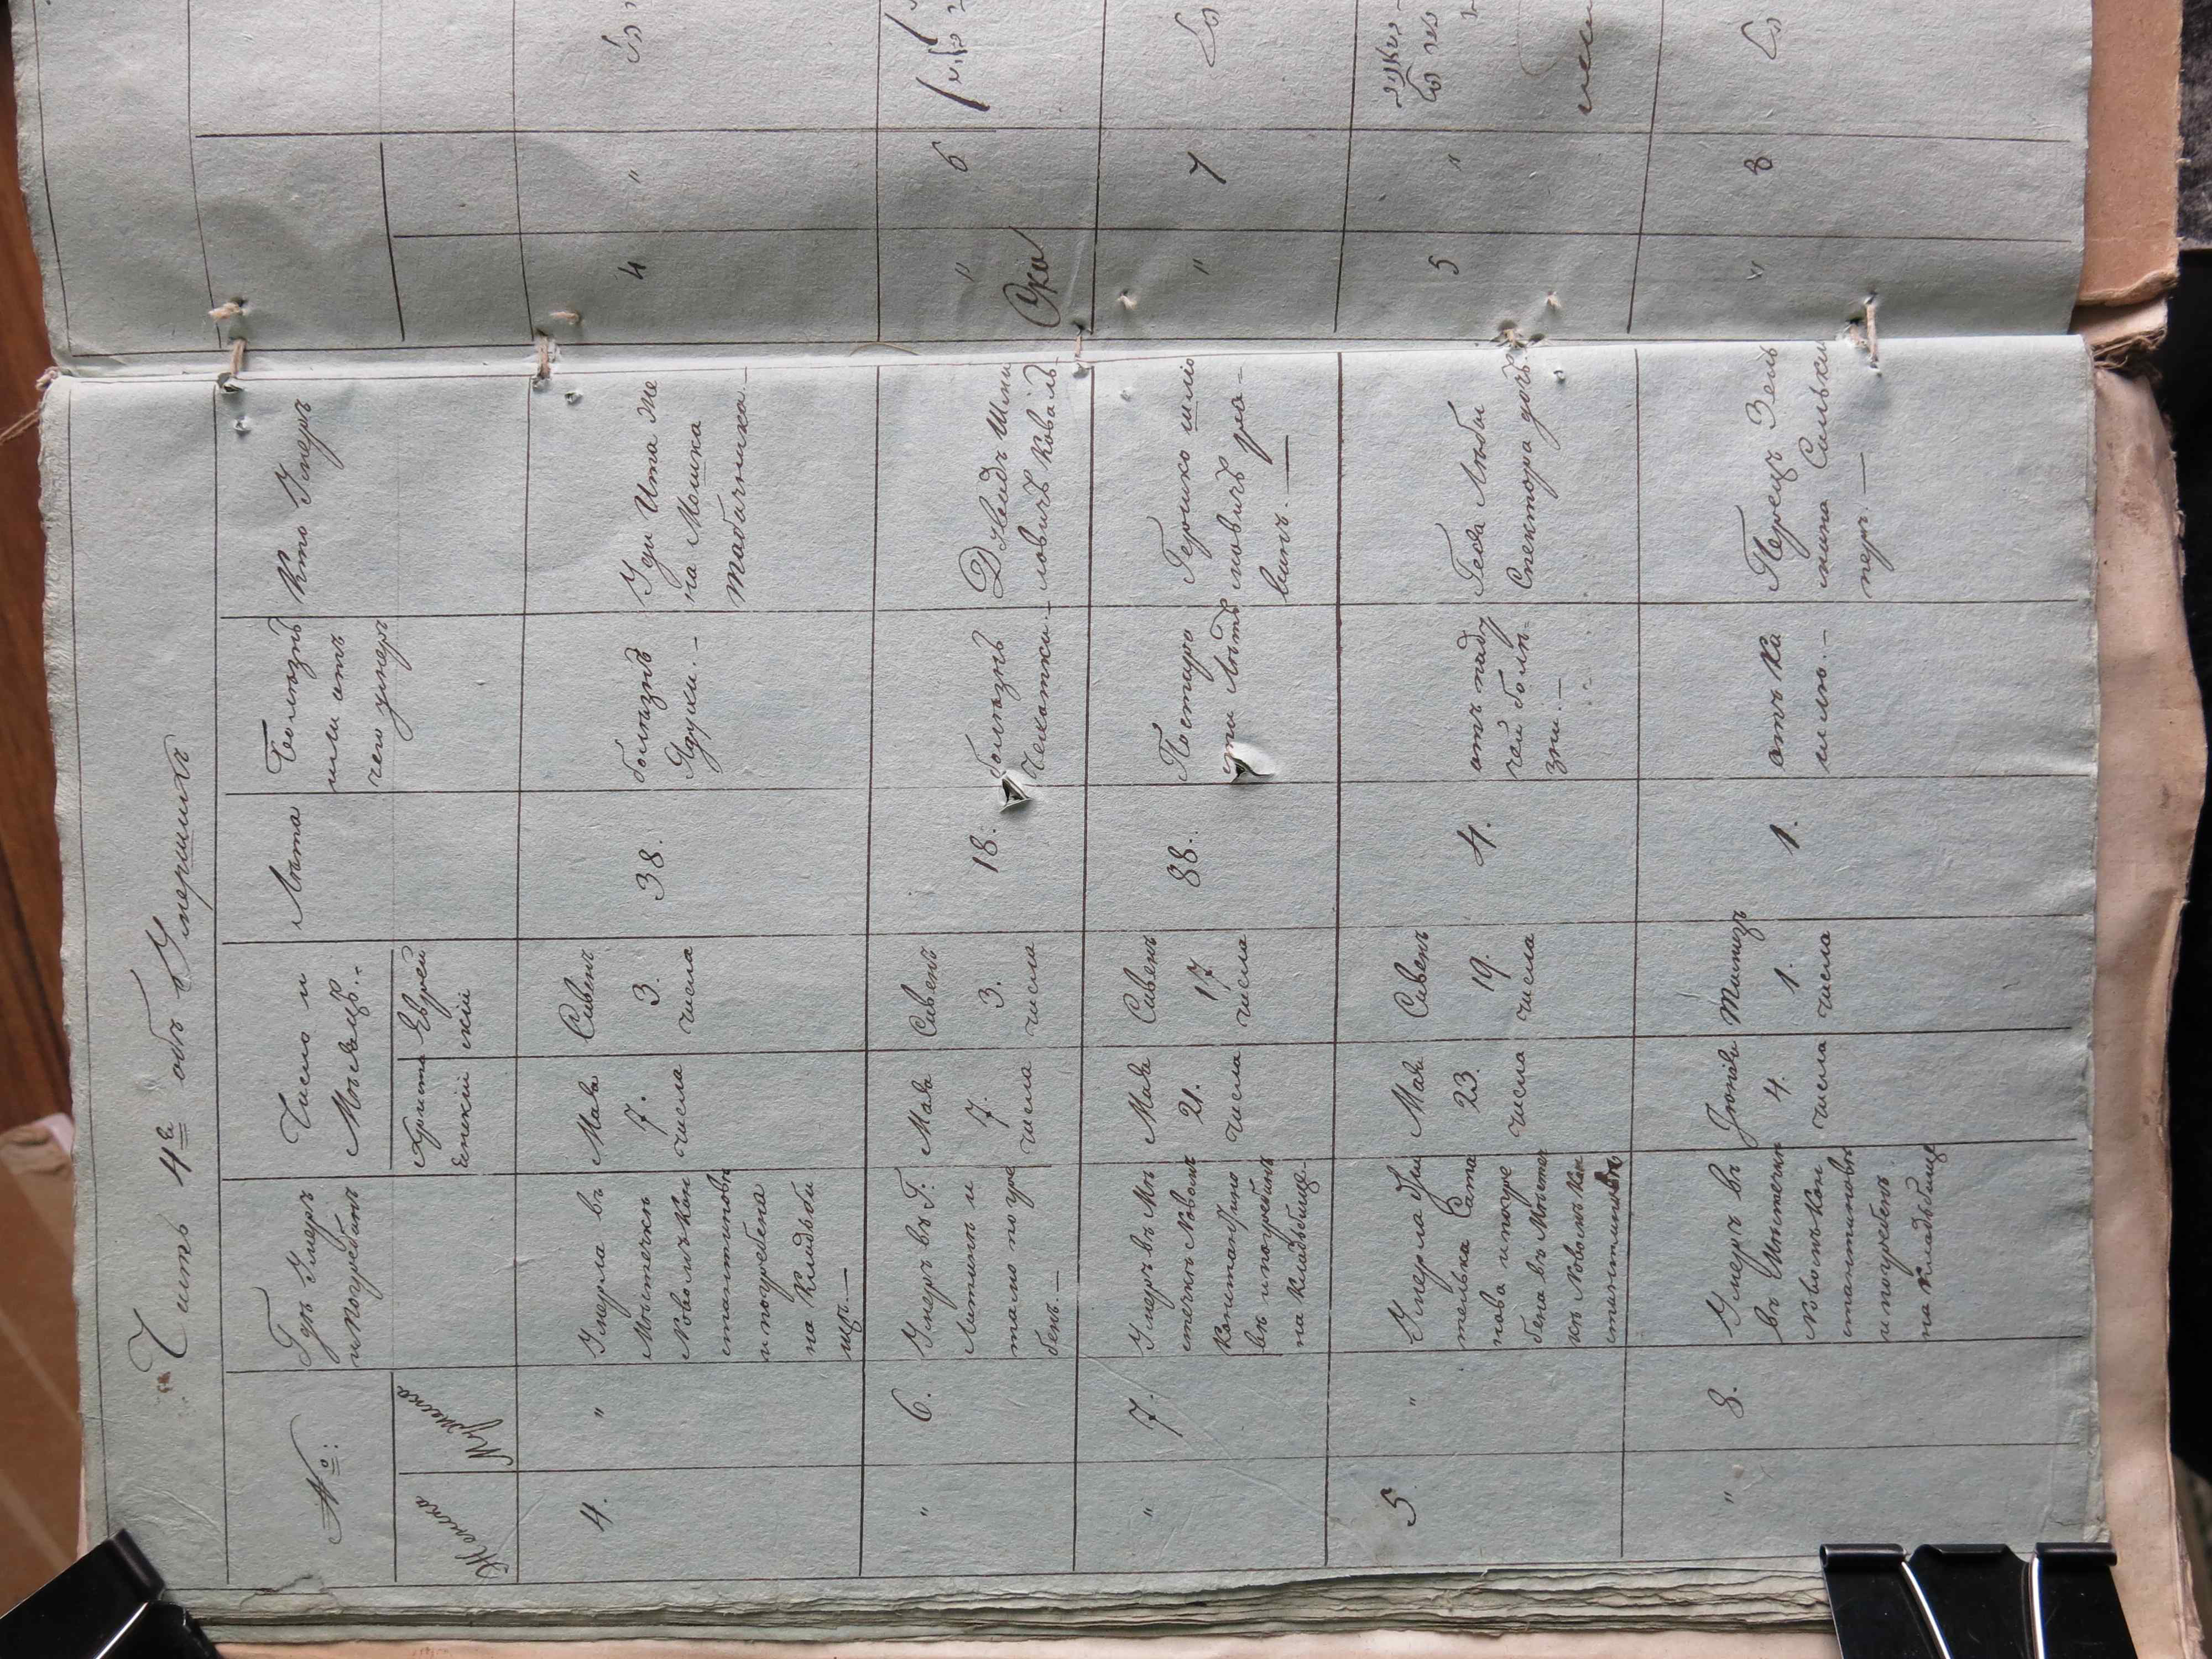 Часть 4я объ Умершихъ
№:
Женска
Мужеска
Гдѣ Умеръ
и Погребенъ
Число и
Мѣсяцъ.
Христи
енскій
Еврей
скій
Лѣта
Болѣзнь
или отъ
чего умеръ
Кто Умеръ
4.
"
Умерла въ
Мѣстечкѣ
Новомъ Кон
стантиновѣ
и погребена
на Кладьби
щѣ.—
Мая
7.
числа
Сивенъ
3.
числа
38.
болѣзнь
Ядухи.—
Уди Ита же
на Мошка
Табачника.—
"
6.
Умеръ въ Г.
Литинѣ и
тамо погре
бенъ.—
Мая
7.
числа
Сивенъ
3.
числа
18.
болѣзнь
Чехотки.—
Двидъ Шми
ловичъ Коваль
"
7.
Умеръ въ Мѣ
стечкѣ Новомъ
Константино
вѣ и погребенъ
на Кладьбище
Мая
21.
числа
Сивенъ
17.
числа
88.
Постаро
сти Лѣтъ
Гершко шліо
мовичъ ра-
винъ.—
5
"
Умерла
тенька
нова и погре
бена въ Мѣстеч
кѣ Новомъ Кон
стантиновѣ
Мая
23.
числа
Сивенъ
19.
числа
4.
отъ паду
чей болѣ-
зни.—
Геся Любы
Спектора дочь
"
8.
Умеръ въ
въ Мѣстечкѣ
Новомъ Кон
стантиновѣ
и погребенъ
на Кладьбище
Іюнія
4.
числа
Тамизъ
1.
числа
1.
отъ Ка
шлю.—
Перецъ Зель
мана Сальки
перъ.—
4
"
"
6
Ско
"
7
5
"
"
8